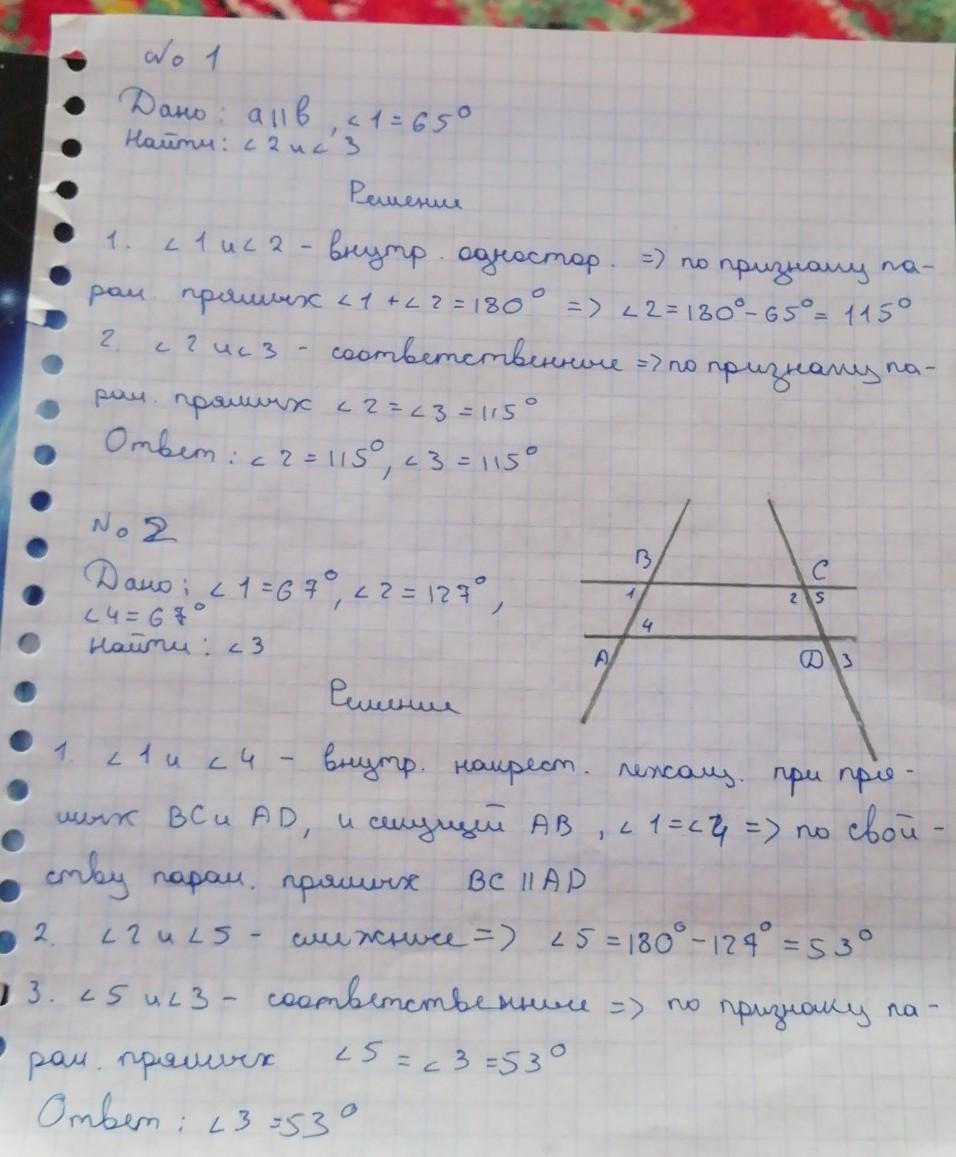 № 1
Дано: a||b, ∠1=65°
Найти: ∠2 и ∠3
Решение
1. ∠1 и ∠2 - внутр. одностор. => по признаку па-
рал. прямых ∠1+∠2=180° => ∠2=180°-65°=115°
2. ∠2 и ∠3 - соответственные => по признаку па-
рал. прямых ∠2=∠3=115°
Ответ: ∠2=115°, ∠3=115°
№ 2
Дано: ∠1=67°, ∠2=127°,
∠4=67°
Найти: ∠3
B
C
1
2
5
4
A
D
3
Решение
1. ∠1 и ∠4 - внутр. накрест. лежащ. при пря-
мых BC и AD, и секущей AB, ∠1=∠4 => по свой-
ству парал. прямых BC||AD
2. ∠2 и ∠5 - смежные => ∠5=180°-127°=53°
3. ∠5 и ∠3 - соответственные => по признаку па-
рал. прямых ∠5=∠3=53°
Ответ: ∠3=53°